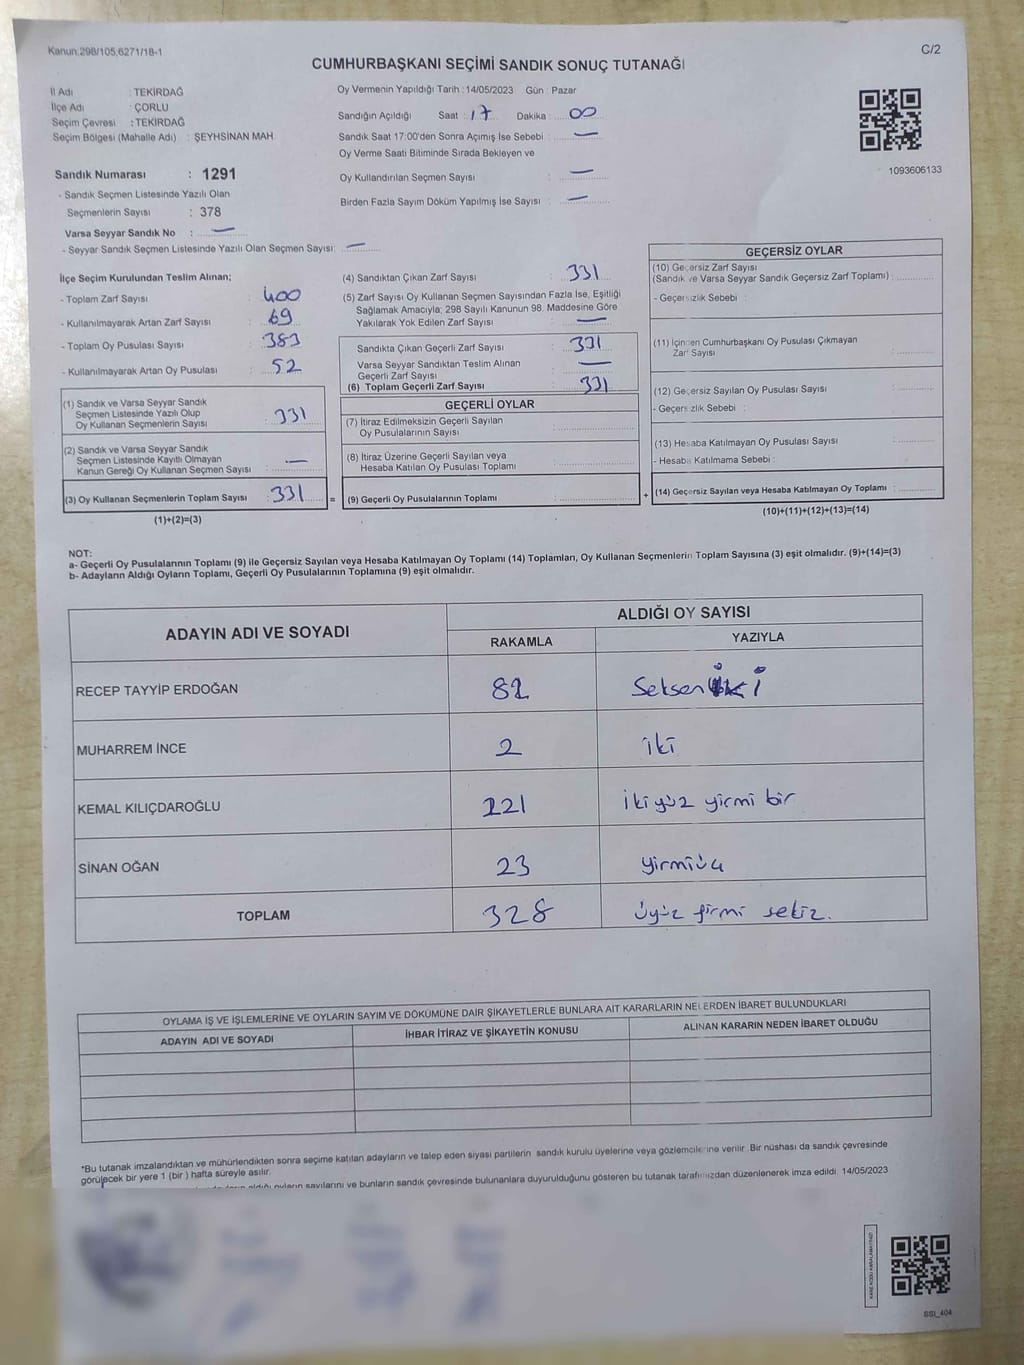 Kanun:298/105,6271/18-1
C/2
CUMHURBAŞKANI SEÇİMİ SANDIK SONUÇ TUTANAĞI
İl Adı : TEKİRDAĞ
İlçe Adı : ÇORLU
Seçim Çevresi : TEKİRDAĞ
Seçim Bölgesi (Mahalle Adı) : ŞEYHSİNAN MAH.
Sandık Numarası : 1291
- Sandık Seçmen Listesinde Yazılı Olan
Seçmenlerin Sayısı : 378
Varsa Seyyar Sandık No : —
- Seyyar Sandık Seçmen Listesinde Yazılı Olan Seçmen Sayısı: —
Oy Vermenin Yapıldığı Tarih : 14/05/2023 Gün : Pazar
Sandığın Açıldığı Saat : 17 Dakika : 00
Sandık Saat 17:00'den Sonra Açımış İse Sebebi : —
Oy Verme Saati Bitiminde Sırada Bekleyen ve
Oy Kullandırılan Seçmen Sayısı : —
Birden Fazla Sayım Döküm Yapılmış İse Sayısı : —
1093606133
İlçe Seçim Kurulundan Teslim Alınan;
- Toplam Zarf Sayısı : 400
- Kullanılmayarak Artan Zarf Sayısı : 69
- Toplam Oy Pusulası Sayısı : 383
- Kullanılmayarak Artan Oy Pusulası : 52
(1) Sandık ve Varsa Seyyar Sandık
Seçmen Listesinde Yazılı Olup
Oy Kullanan Seçmenlerin Sayısı : 331
(2) Sandık ve Varsa Seyyar Sandık
Seçmen Listesinde Kayıtlı Olmayan
Kanun Gereği Oy Kullanan Seçmen Sayısı : —
(3) Oy Kullanan Seçmenlerin Toplam Sayısı : 331
(1)+(2)=(3)
(4) Sandıktan Çıkan Zarf Sayısı : 331
(5) Zarf Sayısı Oy Kullanan Seçmen Sayısından Fazla İse, Eşitliği
Sağlamak Amacıyla; 298 Sayılı Kanunun 98. Maddesine Göre
Yakılarak Yok Edilen Zarf Sayısı : —
Sandıkta Çıkan Geçerli Zarf Sayısı : 331
Varsa Seyyar Sandıktan Teslim Alınan
Geçerli Zarf Sayısı : —
(6) Toplam Geçerli Zarf Sayısı : 331
GEÇERLİ OYLAR
(7) İtiraz Edilmeksizin Geçerli Sayılan
Oy Pusulalarının Sayısı :
(8) İtiraz Üzerine Geçerli Sayılan veya
Hesaba Katılan Oy Pusulası Toplamı :
= (9) Geçerli Oy Pusulalarının Toplamı :
GEÇERSİZ OYLAR
(10) Geçersiz Zarf Sayısı
(Sandık ve Varsa Seyyar Sandık Geçersiz Zarf Toplamı) :
- Geçersizlik Sebebi :
(11) İçinden Cumhurbaşkanı Oy Pusulası Çıkmayan
Zarf Sayısı :
(12) Geçersiz Sayılan Oy Pusulası Sayısı :
- Geçersizlik Sebebi :
(13) Hesaba Katılmayan Oy Pusulası Sayısı :
- Hesaba Katılmama Sebebi :
+ (14) Geçersiz Sayılan veya Hesaba Katılmayan Oy Toplamı :
(10)+(11)+(12)+(13)=(14)
NOT:
a- Geçerli Oy Pusulalarının Toplamı (9) ile Geçersiz Sayılan veya Hesaba Katılmayan Oy Toplamı (14) Toplamları, Oy Kullanan Seçmenlerin Toplam Sayısına (3) eşit olmalıdır. (9)+(14)=(3)
b- Adayların Aldığı Oyların Toplamı, Geçerli Oy Pusulalarının Toplamına (9) eşit olmalıdır.
ADAYIN ADI VE SOYADI
ALDIĞI OY SAYISI
RAKAMLA YAZIYLA
RECEP TAYYİP ERDOĞAN 82 Seksen iki
MUHARREM İNCE 2 iki
KEMAL KILIÇDAROĞLU 221 ikiyüz yirmi bir
SİNAN OĞAN 23 yirmiüç
TOPLAM 328 üçyüz yirmi sekiz.
OYLAMA İŞ VE İŞLEMLERİNE VE OYLARIN SAYIM VE DÖKÜMÜNE DAİR ŞİKAYETLERLE BUNLARA AİT KARARLARIN NELERDEN İBARET BULUNDUKLARI
ADAYIN ADI VE SOYADI İHBAR İTİRAZ VE ŞİKAYETİN KONUSU ALINAN KARARIN NEDEN İBARET OLDUĞU
*Bu tutanak imzalandıktan ve mühürlendikten sonra seçime katılan adayların ve talep eden siyasi partilerin sandık kurulu üyelerine veya gözlemcilerine verilir. Bir nüshası da sandık çevresinde
görülecek bir yere 1 (bir) hafta süreyle asılır.
aldığı oyların sayılarını ve bunların sandık çevresinde bulunanlara duyurulduğunu gösteren bu tutanak tarafımızdan düzenlenerek imza edildi. 14/05/2023
SSI_404